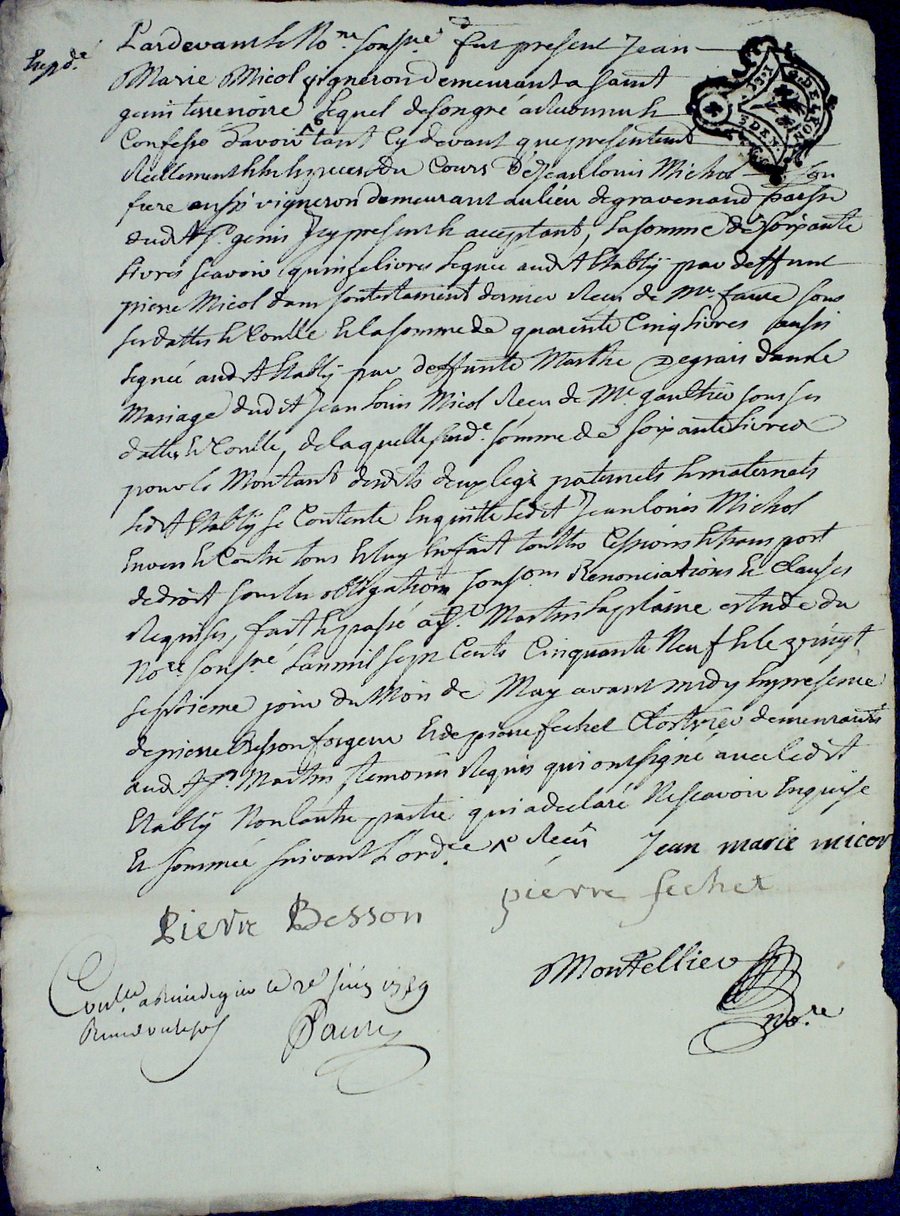 Exp.de
Pardevant le No.re sousne. fut present Jean
Marie Micol vigneron demeurant a saint
genis terrenoire, lequel de son gré advoue et
Confesse d'avoir tant Cy devant que presentement
Reellement et Receu du Cours De Jean louis Michol son
frere aussi vigneron demeurant au lieu de gravenand parsse
dudit St. genis Jcy present et acceptant, la somme de soixante
livres sçavoir quinze livres leguée audit Etably par deffunt
pierre Micol dans son testament dernier Receu de Me. faure sous
ses dattes et Conlle et la somme de quarente Cinq livres aussi
leguée audit Etably par deffunte Marthe Degrais dans le
Mariage dudit Jean louis Micol Receu de Me. gaultier sous ses
dattes et Conlle, de laquelle susde. somme de soixante livres
pour le Montant desdits deux legs paternels et maternels
ledit Etably se Contente en quitte ledit Jean louis Michol
Envers et Contre tous et luy en fait touttes Cessions et transport
de droit sous les obligations soumons Renonciations et Clauses
Requises, fait et passé a St. Martin la plaine estude du
No.re sousné. L'an mil sept Cents Cinquante Neuf et le vingt
septieme jour du Mois de May avant midy en presence
de pierre Besson forgeur et de pierre fechet Clostrier demeurants
audit St. Martin temoins Requis qui ont signé avec ledit
Etably Non l'autre partie qui a declaré Ne sçavoir Enquise
et sommée suivant L'ord.ce Receu Jean marie micol
Pierre Besson pierre fechet
Conlle a Rivedegier le 2e juin 1759
Montellier
No.re
Faure